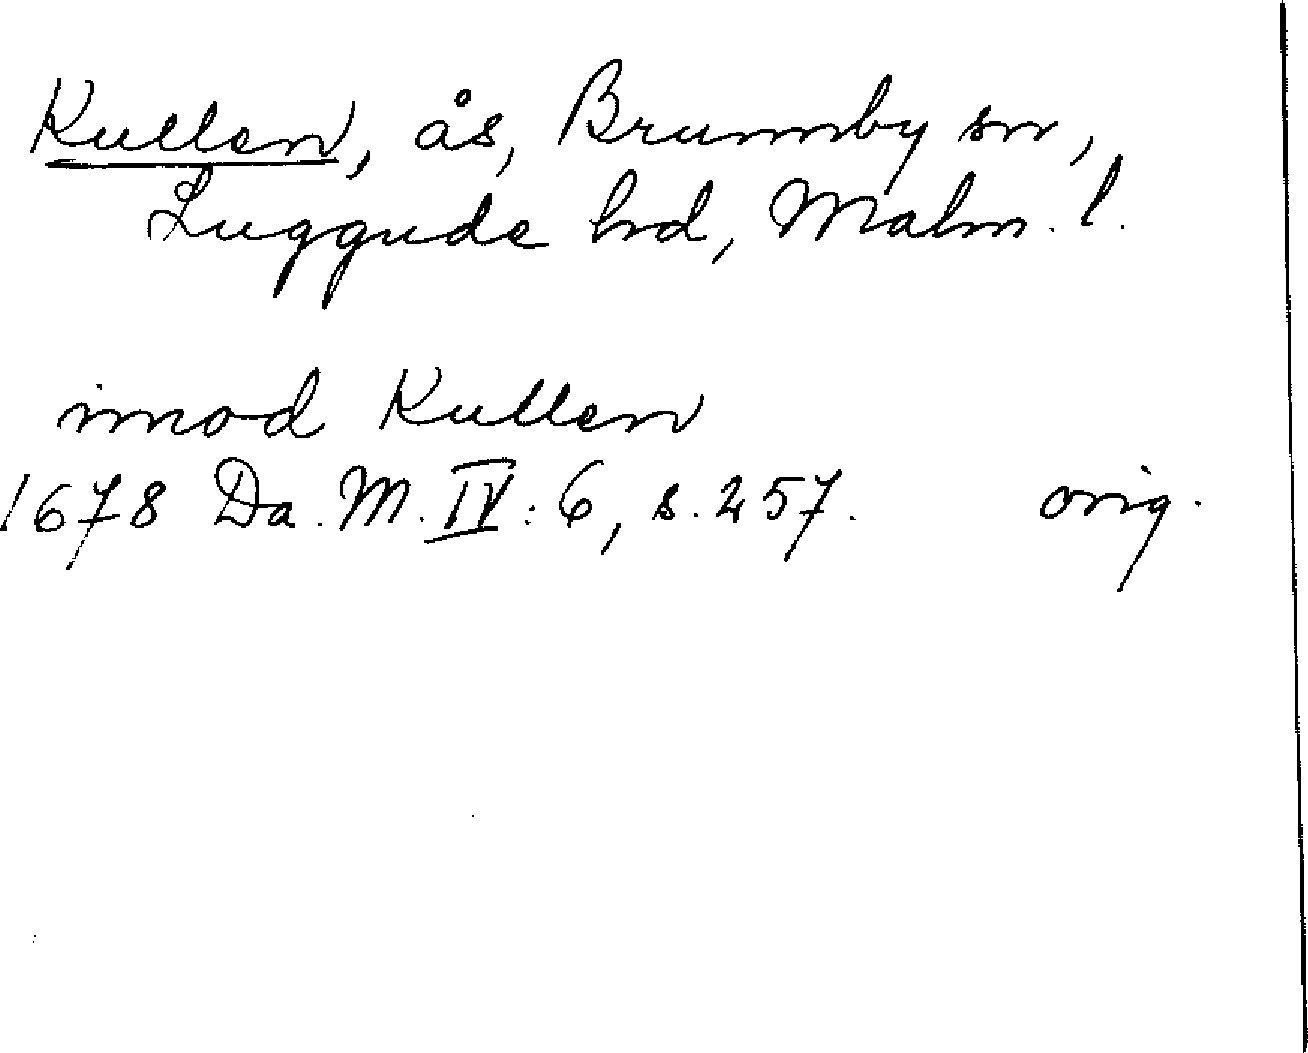 Kullen, ås, Brunnby sn,
Luggude hd, Malm. l.
imod Kullen
1678 Da. M. IV: 6, s. 257. orig.